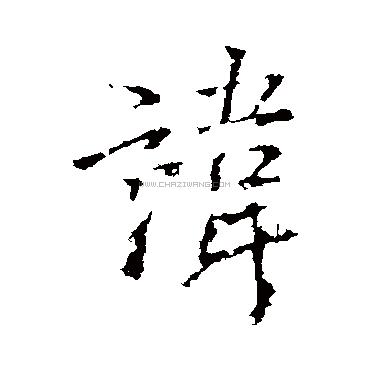 諱
WWW.CHAZIWANG.COM